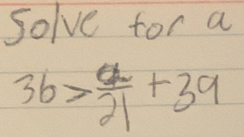 Solve for a
36 > a/21 + 39